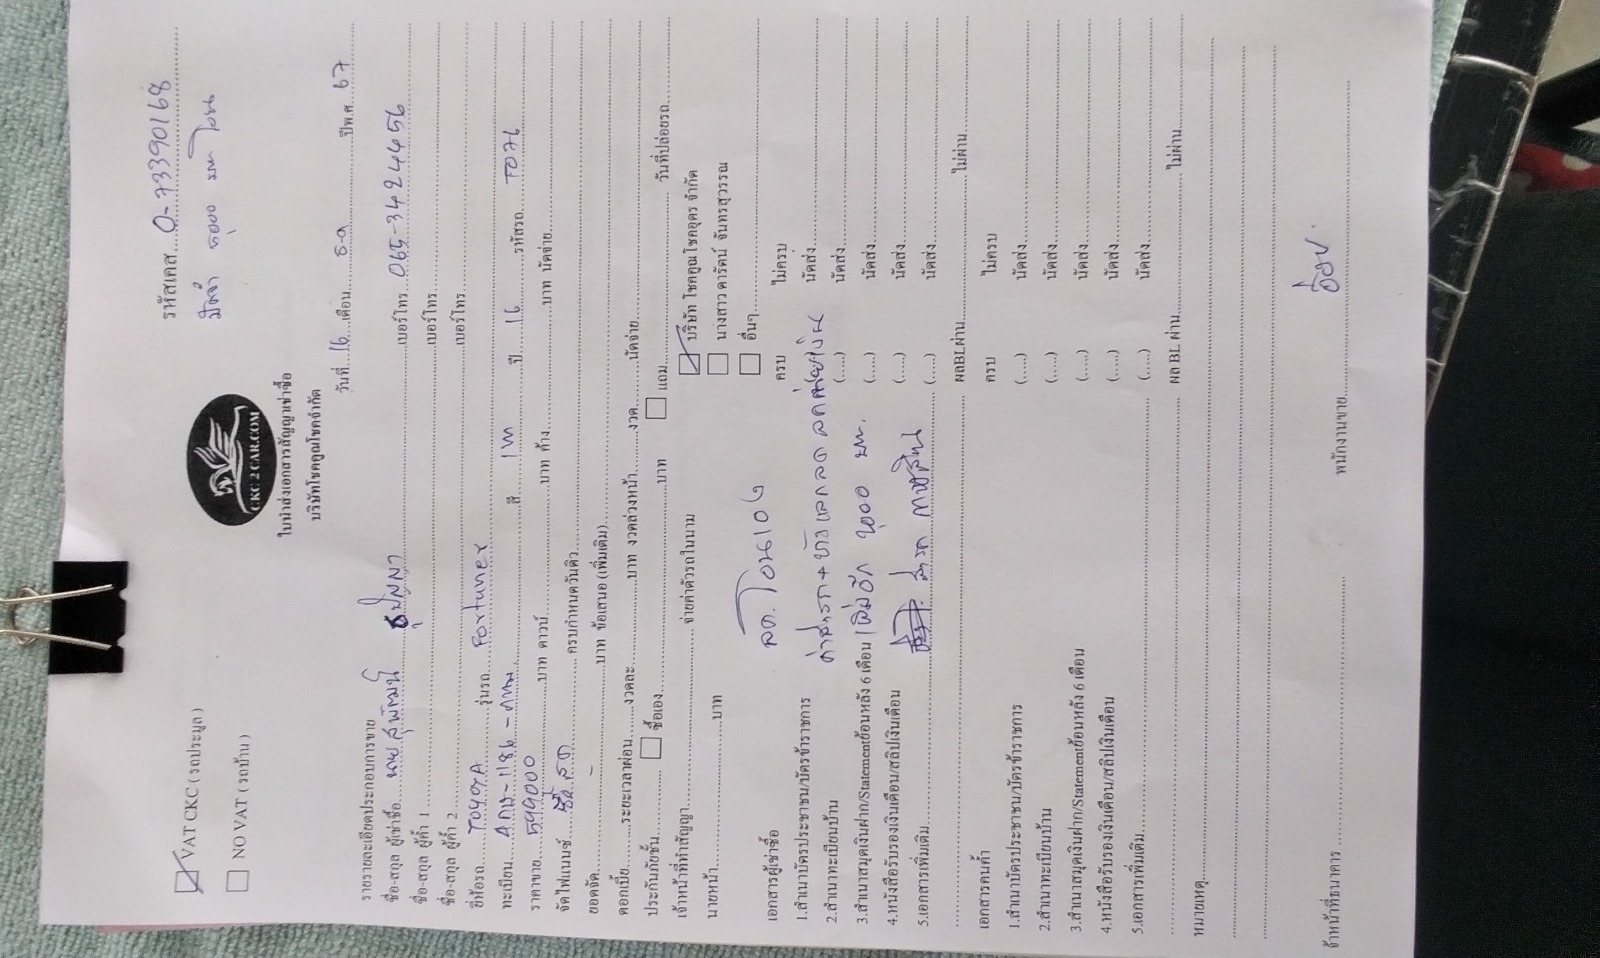 รหัสเคส....0-73390168
มัดจำ 5000 บาท โอน
☑ VAT CKC ( รถประมูล )
☐ NO VAT ( รถบ้าน )
CKC 2 CAR.COM
ใบนำส่งเอกสารสัญญาเช่าซื้อ
บริษัทโชคคูณโชคจำกัด
วันที่...16...เดือน....ธ.ค....ปีพ.ศ. 67
รายรายละเอียดประกอบการขาย
ชื่อ-สกุล ผู้เช่าซื้อ....นาย สุพัฒน์....เบอร์โทร 065-3424456
ชื่อ-สกุล ผู้ค้ำ 1....เบอร์โทร....
ชื่อ-สกุล ผู้ค้ำ 2....เบอร์โทร....
ยี่ห้อรถ....TOYOTA....รุ่นรถ....Fortuner
ทะเบียน....1186-กทม....สี....เทา....ปี....16....รหัสรถ....TO76
ราคาขาย....599000....บาท ดาวน์....บาท ค้าง....บาท นัดจ่าย....
จัดไฟแนนซ์....ซื้อสด....ครบกำหนดวันคิว....
ยอดจัด....บาท ข้อเสนอ (เพิ่มเติม)....
ดอกเบี้ย....ระยะเวลาผ่อน....งวดละ....บาท งวดล่วงหน้า....งวด....นัดจ่าย....
ประกันภัยชั้น....☐ ซื้อเอง....บาท ☐ แถม....วันที่ปล่อยรถ....
เจ้าหน้าที่ทำสัญญา....จ่ายค่าตัวรถในนาม ☑ บริษัท โชคคูณโชคอุดร จำกัด
นายหน้า....บาท ☐ นางสาว ดารัตน์ จันทรสุวรรณ
☐ อื่นๆ....
เอกสารผู้เช่าซื้อ ลค. โอนเอง ครบ ไม่ครบ
1.สำเนาบัตรประชาชน/บัตรข้าราชการ นัดส่ง....
2.สำเนาทะเบียนบ้าน (....) นัดส่ง....
3.สำเนาสมุดเงินฝาก/Statementย้อนหลัง 6 เดือน เพิ่มอีก บาท. (....) นัดส่ง....
4.หนังสือรับรองเงินเดือน/สลิปเงินเดือน (....) นัดส่ง....
5.เอกสารเพิ่มเติม.... (....) นัดส่ง....
....ผลBLผ่าน....ไม่ผ่าน....
เอกสารคนค้ำ ครบ ไม่ครบ
1.สำเนาบัตรประชาชน/บัตรข้าราชการ (....) นัดส่ง....
2.สำเนาทะเบียนบ้าน (....) นัดส่ง....
3.สำเนาสมุดเงินฝาก/Statementย้อนหลัง 6 เดือน (....) นัดส่ง....
4.หนังสือรับรองเงินเดือน/สลิปเงินเดือน (....) นัดส่ง....
5.เอกสารเพิ่มเติม.... (....) นัดส่ง....
....ผล BL ผ่าน....ไม่ผ่าน....
หมายเหตุ....
จ้าหน้าที่ธนาคาร....พนักงานขาย....อ้อย